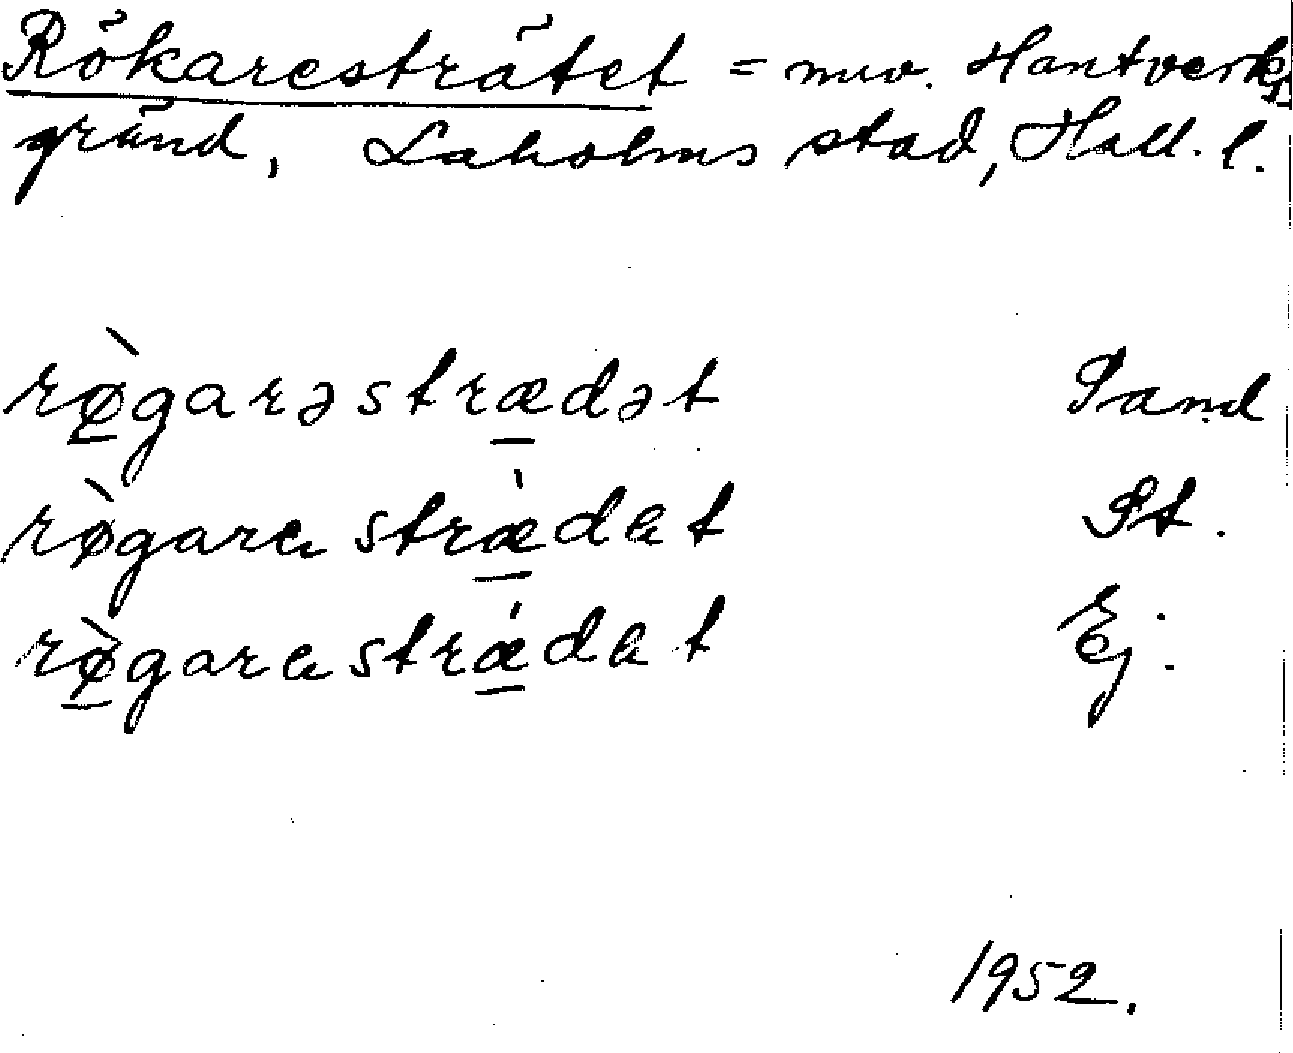 Rökaresträtet = nuv. Hantverks-
gränd, Laholms stad, Hall. l.
rø̀garəstrædət Sand
rø̀garastrædat St.
rø̀garastrædat Ej.
1952.